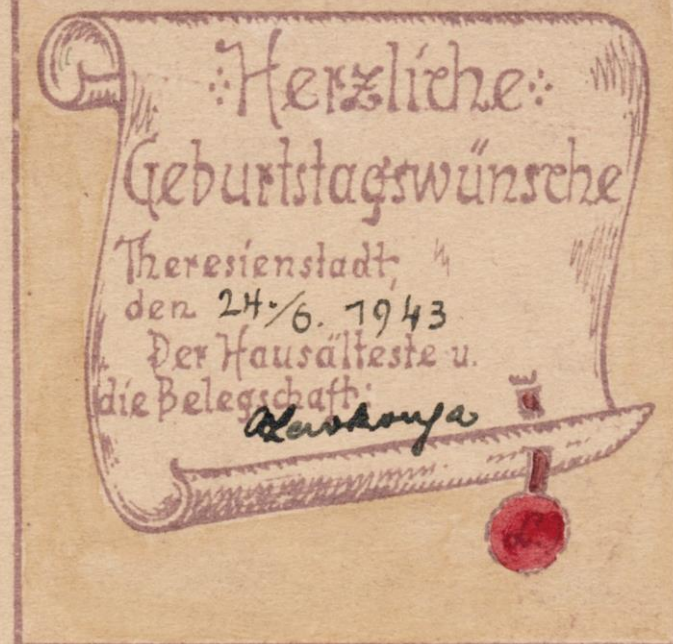 Herzliche
Geburtstagswünsche
Theresienstadt,
den 24./6. 1943
Der Hausälteste u.
die Belegschaft: